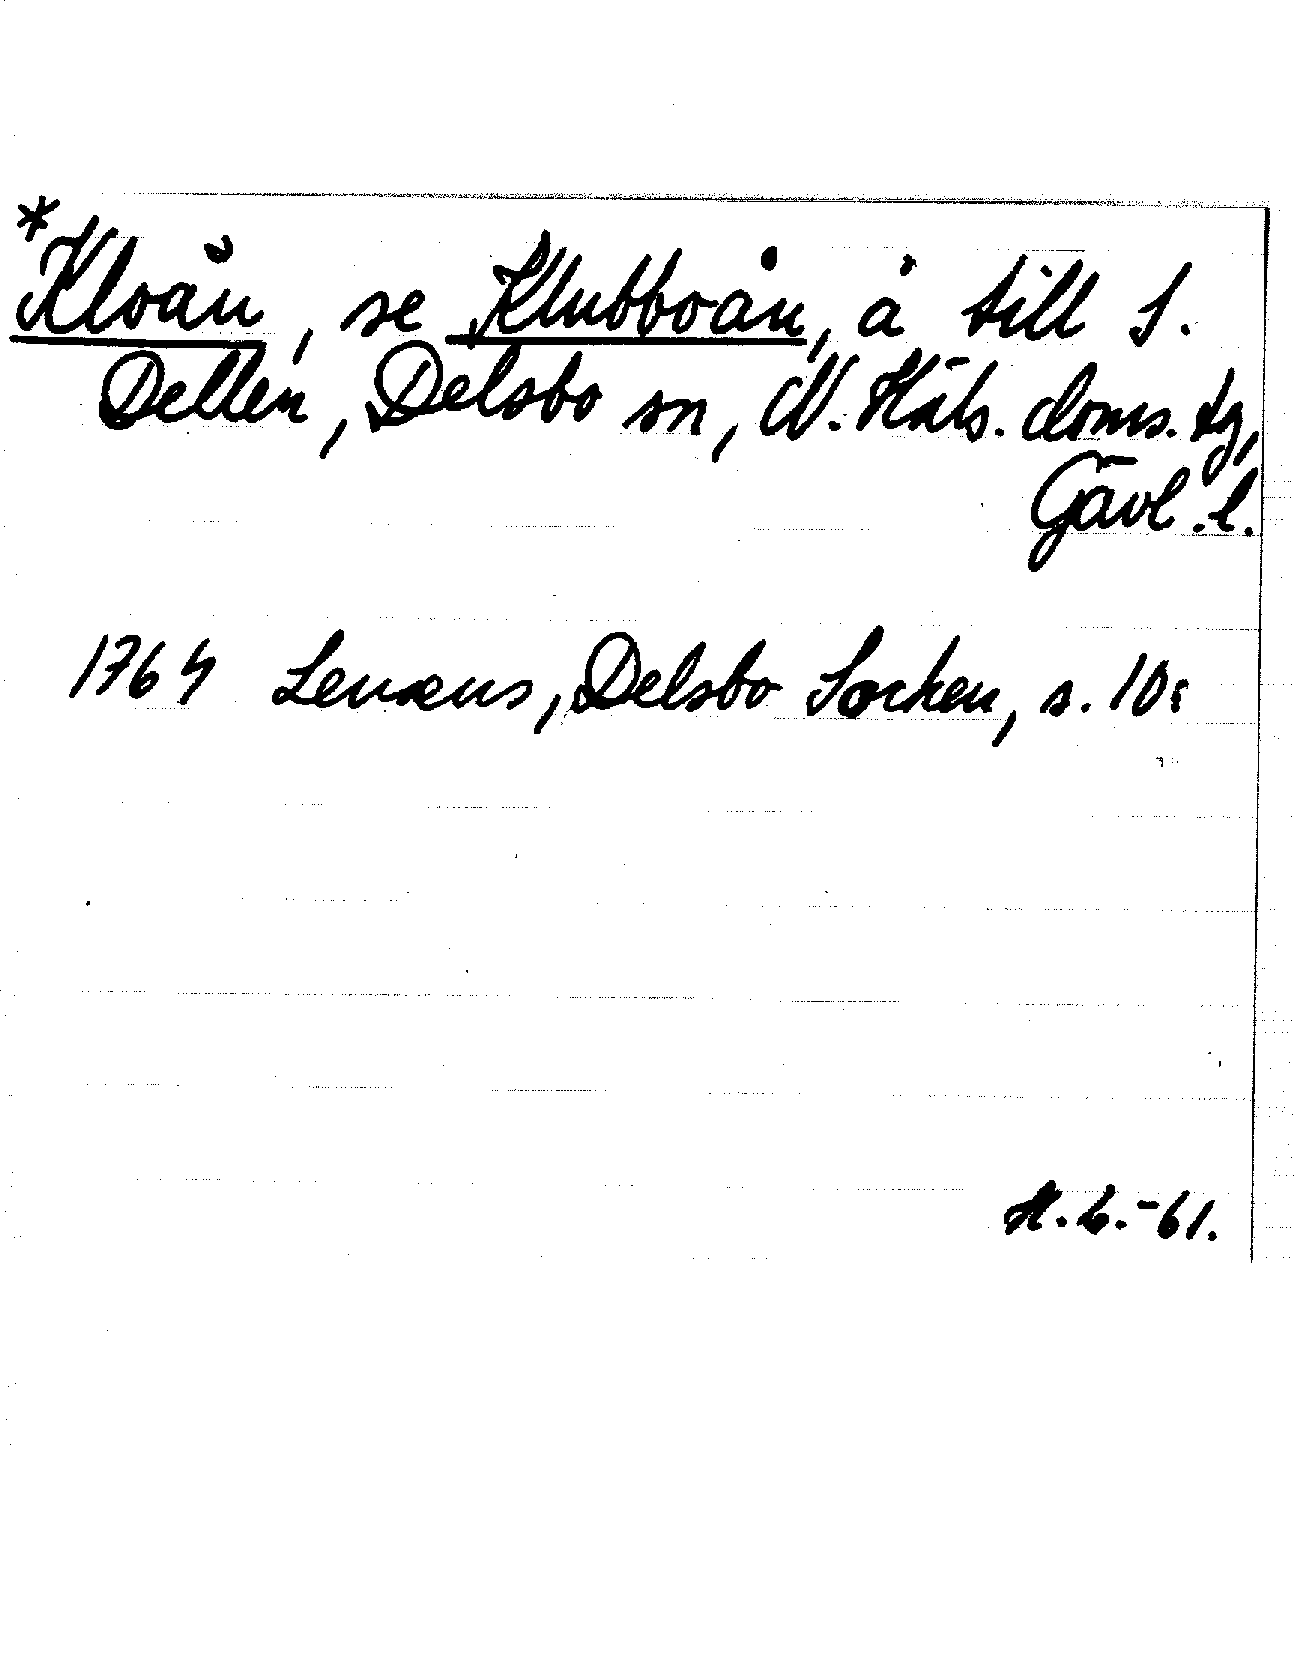 *Kloån, se Klubboån, å till S.
Dellen, Delsbo sn, N. Häls. doms. tg,
Gävl. l.
1764 Lenæus, Delsbo Socken, s. 10.
H.L.-61.